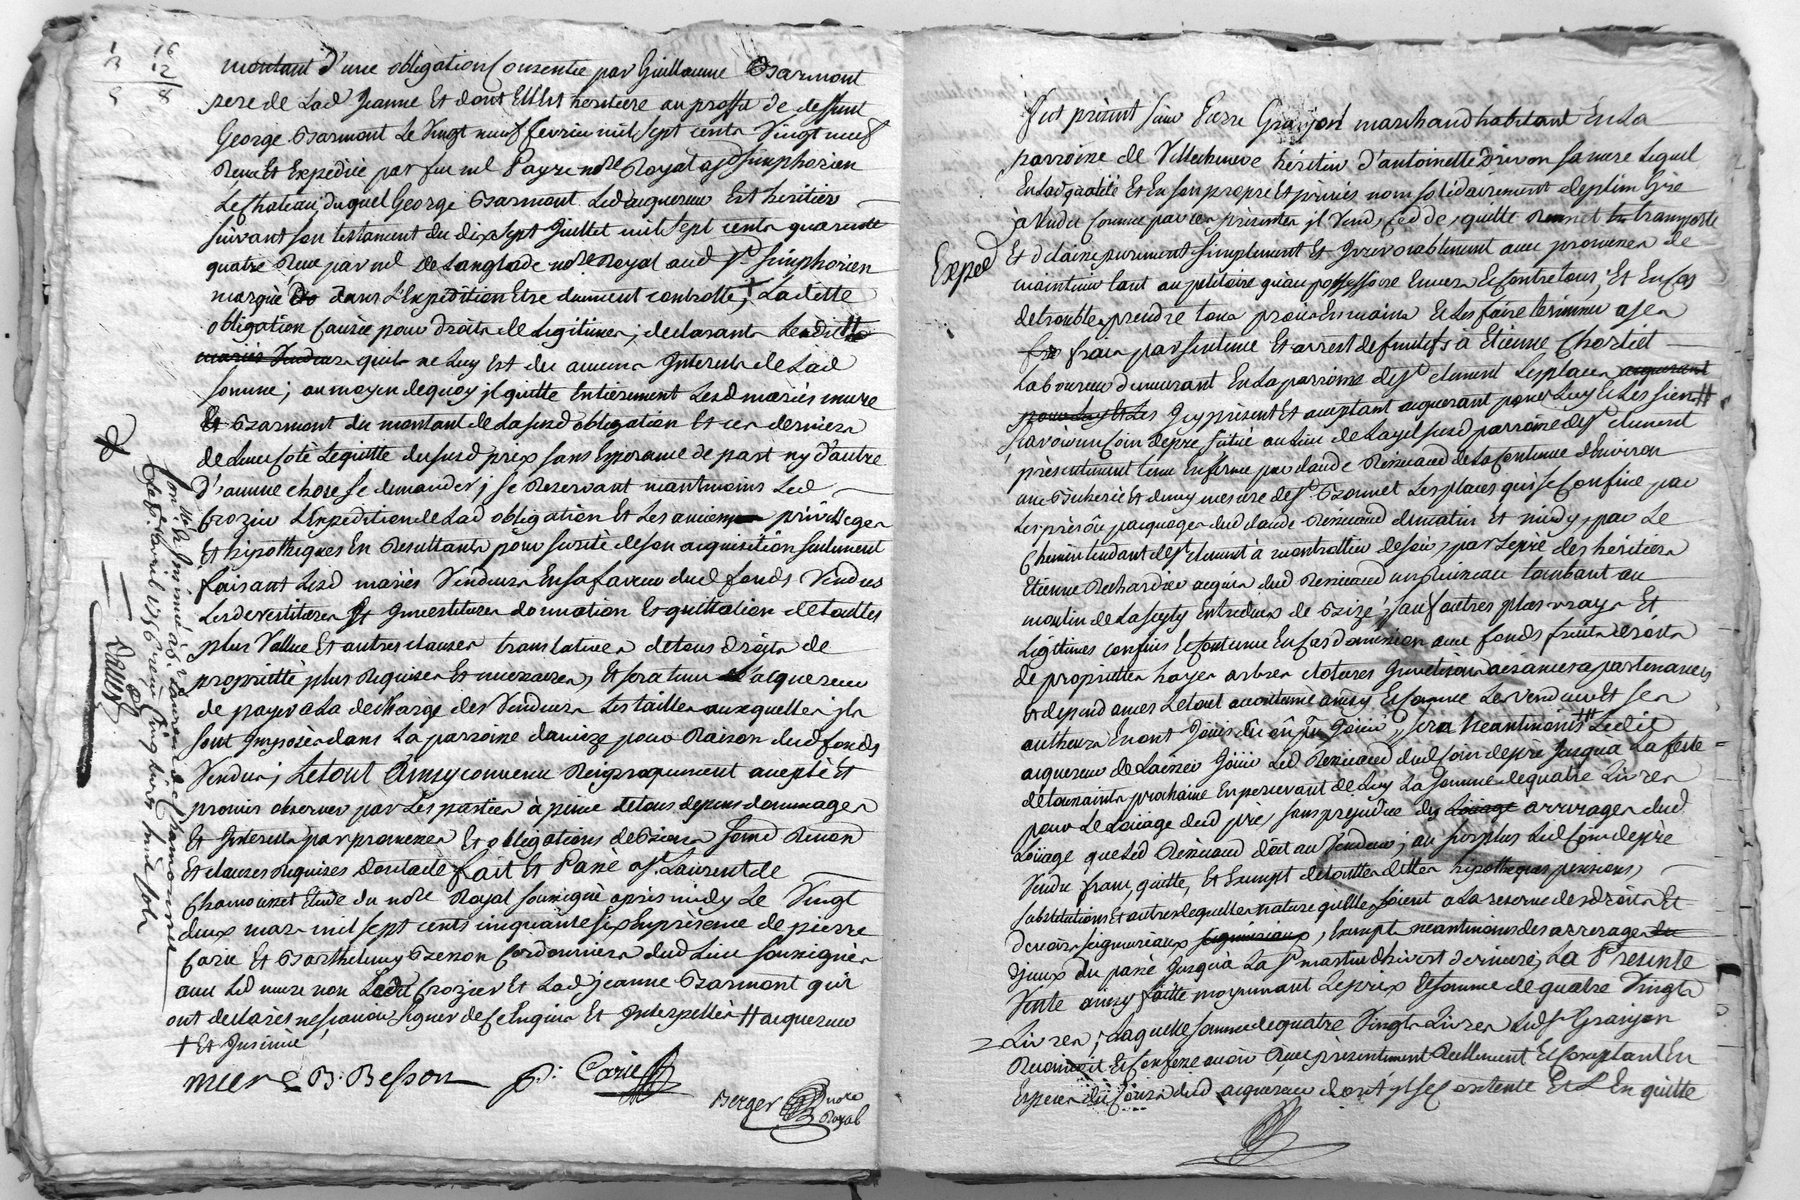 1 16
B 12/
5 8
montant d'une obligation Consentie par Guillaume Barmont
pere de Lad Jeanne Et dont Elle Est heritiere au proffit de deffunt
George Barmont Le Vingt neuf fevrier mil sept cents Vingt neuf
Receu Et Expediée par feu me Payre nore Royal a St simphorien
Le Chateau duquel George Barmont Led acquereur Est heritier
suivant son testament du dix sept Juillet mil sept cents quarante
quatre Receu par me De Langlade nore Royal aud St Simphorien
marqué dans L'Expedition Etre duement controllé, † Ladette
obligation Causée pour droits de Legitimes; declarants Lesdits
mariés Vendeurs quils ne Luy Est du aucuns Interests de Lad
somme; au moyen de quoy il quitte Entierement Lesd mariés mure
Et Barmont du montant de Lasusd obligation Et ces derniers
de Leur Coté Le quitte dususd prix sans Esperance de part ny d'autre
d'aucune chose se demander; se Reservant neantmoins Led
Crozier L'Expedition de Lad obligation Et Les anciens privilleges
Et hipotheques En Resultants pour sureté de son acquisition seulement
faisant Lesd mariés Vendeurs En sa faveur dud fonds Vendus
Les devestitures Et Investitures donnation Et quittation de touttes
plus Vallue Et autres clauses translatives de tous droits de
proprietté plus Requises Et necessaires, Et sera tenu L'acquereur
de payer a La decharge des Vendeurs Les tailles auxquelles ils
sont Imposés dans La parroisse daveize pour Raison dud fonds
Vendus; Le tout Ainsy convenu Reciproquement accepté Et
promis observer par Les parties à peine de tous depens dommages
Et Interests par promesses Et obligations de Biens soumd Renon
Et clauses Requises dont acte fait Et Passé a St Laurent de
Chamousset Etude du nore Royal soussigné après midy Le Vingt
deux mars mil sept cents cinquante six En présence de pierre
Carie Et Barthelemy Besson Cordonniers dud Lieu soussignés
avec Led mure non Ledit Crozier Et Lad jeanne Barmont qui
ont declarés ne scavoir signer de Ce Enquis Et Interpellés # acquereur
† Et Insinué
mure B. Besson P. Carie
Berger nore
Royal
Conlle & Insinué à St Laurent de Chamousset
avril 1756 recu Cinq livres huit sols
Expeed
Fut present sieur Pierre Granjon marchand habitant En La
parroisse de Villecheneve héritier d'antoinette Drivon sa mere Lequel
En Lad qualité Et En son propre Et privés nom solidairement de plein Gré
à Vendu Comme par ces présentes il Vend, Cedde, quitte Remet Et transporte
Et delaisse purement simplement Et Irrevocablement avec promesses de
maintenir tant au petitoire qu'au possessoire Envers Et Contre tous; Et En Cas
de troubles prendre tous procès En mains Et Les faire terminer a ses
frais par sentence Et arrest definitifs à Etienne Chortiet
Laboureur demeurant En La parroisse de St clement Les places acquerant
pour Luy Et Les Icy présent Et aceptant acquerant pour Luy Et Les siens #
scavoir un Coin de pre situé au Lieu de Lay susd parroisse de St clement
présentement tenu En ferme par claude Reinaud de La Contenue d'Environ
une Bicherée Et demy mesure de St Bonnet Les places qui se Confine par
Les près ou pacquages dud claude Reinaud de matin Et midy, par Le
Chemin tendant de St clement à montrottier de soir, par Le pré des héritiers
Etienne Rechardier acquis dud Reinaud un ruisseau tombant au
moulin de entredeux de Bize; sauf autres plus vrays Et
Legitimes confins Et Contenue En Cas d'omission avec fonds fruits droits
de proprietté hayes arbres clotures Investisons aisances apartenances
Et dependances Le tout accoutumé ainsy Et Comme Le vendeur Et ses
autheurs En ont Joüis du Joüir, sera neantmoins # Ledit
acquereur de Laisser Joüir Led Reinaud dud Coin de pre Jusqua La feste
de toussaints prochaine En percevant de Luy La somme de quatre Livres
pour Le Loüage dud pré, sans prejudice des Loüage arrerages dud
Loüage que Led Reinaud doit au Vendeur; au surplus Led Coin de pre
Vendu franc, quitte, Et Exempt de touttes dettes hipotheques pensions,
substitutions Et autres de quelles nature qu'elles soient a La reserve des droits Et
devoirs seigneuriaux seigneuriaux, Exempt neantmoins des arrerages du
d'Iceux du passé Jusqu'à La St martin d'hivert derniere, La Presente
Vente ainsy faitte moyennant Le prix Et somme de quatre Vingts
Livres; Laquelle somme de quatre Vingts Livres Led Sr Granjon
Reconnoit Et Confesse avoir Receu présentement Reellement Et Comptant En
Especes du Cours dud acquereur dont il se Contente Et L'En quitte